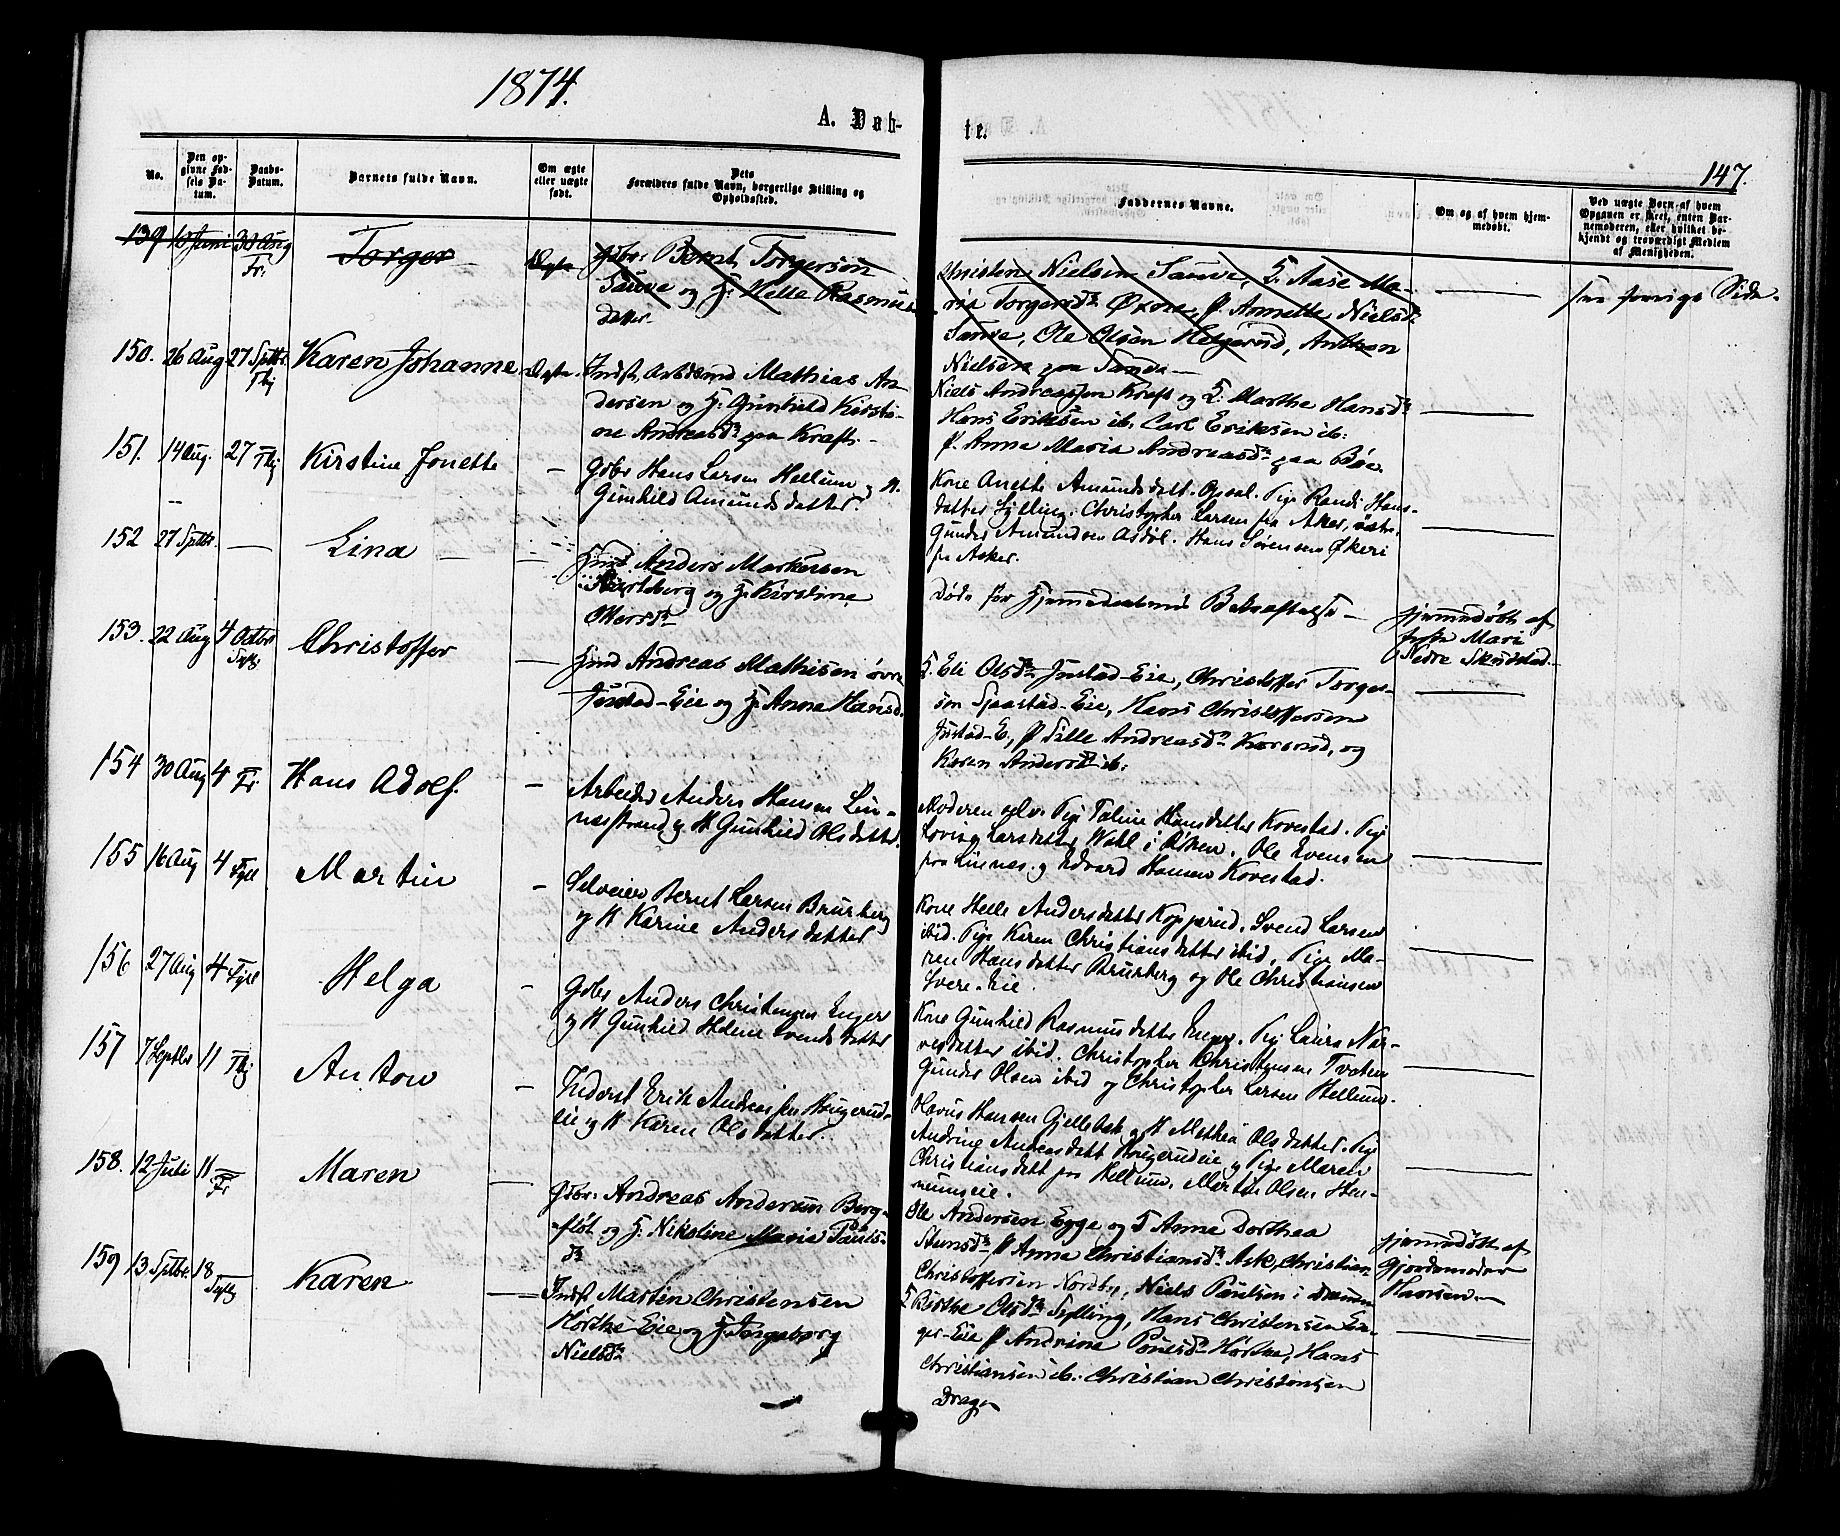 1874.
A. Døb-
te.
147.
No.
Den op-
givne Fød-
sels Da-
tum.
Daabs-
Datum.
Barnets fulde Navn.
Om ægte
eller uægte
født.
Dets
Forældres fulde Navn, borgerlige Stilling og
Opholdssted.
Faddernes Navne.
Om og af hvem hjem-
medøbt.
Ved uægte Børn af hvem
Opgaven er skeet, enten Bar-
nemoderen, eller hvilket be-
kjendt og troværdigt Medlem
af Menigheden.
139 10 Juni 30 Aug Fr: Torger Ægte
Gdbr: Bernt Torgersen
Sauve og H: Helle Rasmus
datter.
Christen Nielsen Sauve, K. Aase Ma-
ria Torgersdr Øxne, P. Annette Nielsd
Sauve, Ole Olsen Helgerud, Anton
Nielsen paa Sauve
see forrige Side.
150. 26 Aug 27 Septbr. Thj Karen Johanne Ægte.
Indst. Arbdsmd Mathias An-
dersen og H. Gunhild Kirsti-
ne Andreasdr paa Kraft.
Niels Andreassen Kraft og K. Marthe Hansdr
Hans Eriksen ib. Carl Eriksen ib:
P. Anne Maria Andreasdr paa Bøe.
151. 14 Aug. 27 Thj Kirstine Jonette —
Gdbr Hans Larsen Hellum og H.
Gunhild Amundsdatter.
Kone Anette Amundsdatt. Opsal. Pige Randi Hans-
datter Sylling. Christopher Larsen fra Asker, østre.
Gunder Amundsen Asdøl. Hans Sørensen Økeri
fra Asker.
152 27 Septbr. — Lina —
Hmd. Anders Markussen
og H. Kirstine
Døde før Hjemmedaabens Bekræftelse —
hjemmedøbt af
Mari
Nedre Skudstad.
153. 22 Aug 4 Octbr Sylg: Christoffer —
Hmd Andreas Mathisen øvre
Justad-Eie og H. Anna Hansd.
K. Eli Olsdr Justad-Eie, Christoffer Torger-
sen Sjaastad-Eie, Hans Christoffersen
Justad-E, P Sille Andreasdr Korsrud, og
Karen Andersd ib:
154 30 Aug 4 Fr. Hans Adolf. —
Arbeider Anders Hansen Lin-
næsstrand og H Gunhild Olsdatter.
Moderen selv. Pige Taline Hansdatter Kovestad. Pige
Lovise Larsdatter Wahl i Røken. Ole Evensen
fra Linnæs. og Edvard Hansen Kovestad.
155 16 Aug 4 Syll Martin —
Selveier Bernt Larsen Brurberg
og H Karine Andersdatter
Kone Helle Andersdatter Kopperud. Svend Larsen
ibid. Pige Karen Christiansdatter ibid. Pige Ma-
ren Hansdatter Brurberg og Ole Christiansen
Svere-Eie.
156 27 Aug 4 Syll Helga —
Gdbr Anders Christensen Enger
og H Gunhild Helene Svendsdatter
Kone Gunhild Rasmusdatter Enger. Pige Laura Nar-
vesdatter ibid. Christopher Christensen Tveten
Gunder Olsen ibid og Christopher Larsen Hellum.
157 7 Septbr 11 Thj Anton —
Inderst Erik Andreassen Haugerud-
eie og H Karen Olsdatter.
Havus Hansen Gjellebek og H Mathea Olsdatter. Pige
Andrine Andreasdatt Haugerudeie og Pige Maren
Christiansdatt fra Hellum. Martin Olsen Hen-
numseie.
158. 12 Juli 11 Fr Maren —
Gdbr: Andreas Andersen Berg-
fløt og H. Nikoline Maria Pauls-
dr
Ole Andersen Egge og K Anne Dorthea
Steensdr P Anna Christiansdr Ask, Christian
Christoffersen Nordby, Niels Paulsen i Drammen
hjemmedøbt af
Gjordemoder
Hansen.
159 13 Septbr. 18 Sylg Karen —
Indst Martin Christensen
Hørthe Eie og H. Ingeborg
Nielsdr
K Berthe Olsdr Sylling, Hans Christensen En-
ger-Eie P Andrine Hørthe, Hans
Christiansen ib. Christian Christensen
Drag.